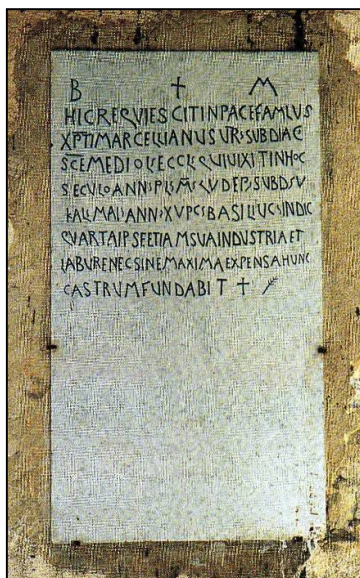 B ✝ M
HICREQVIESCITINPACEFAMLVS
XPTIMARCELLIANUS VRSSUBDIAC
SCEMEDIOLSECCLSQVIVIXITINHOC
SECVLOANNSPLSMSXVDEPSSUBDSV
KALSMAISANNSXVPCSBASILIVCSINDIC
QVARTAIPSEETIAMSVAINDUSTRIAET
LABVRENECSINEMAXIMAEXPENSAHUNC
CASTRUMFUNDABIT ✝